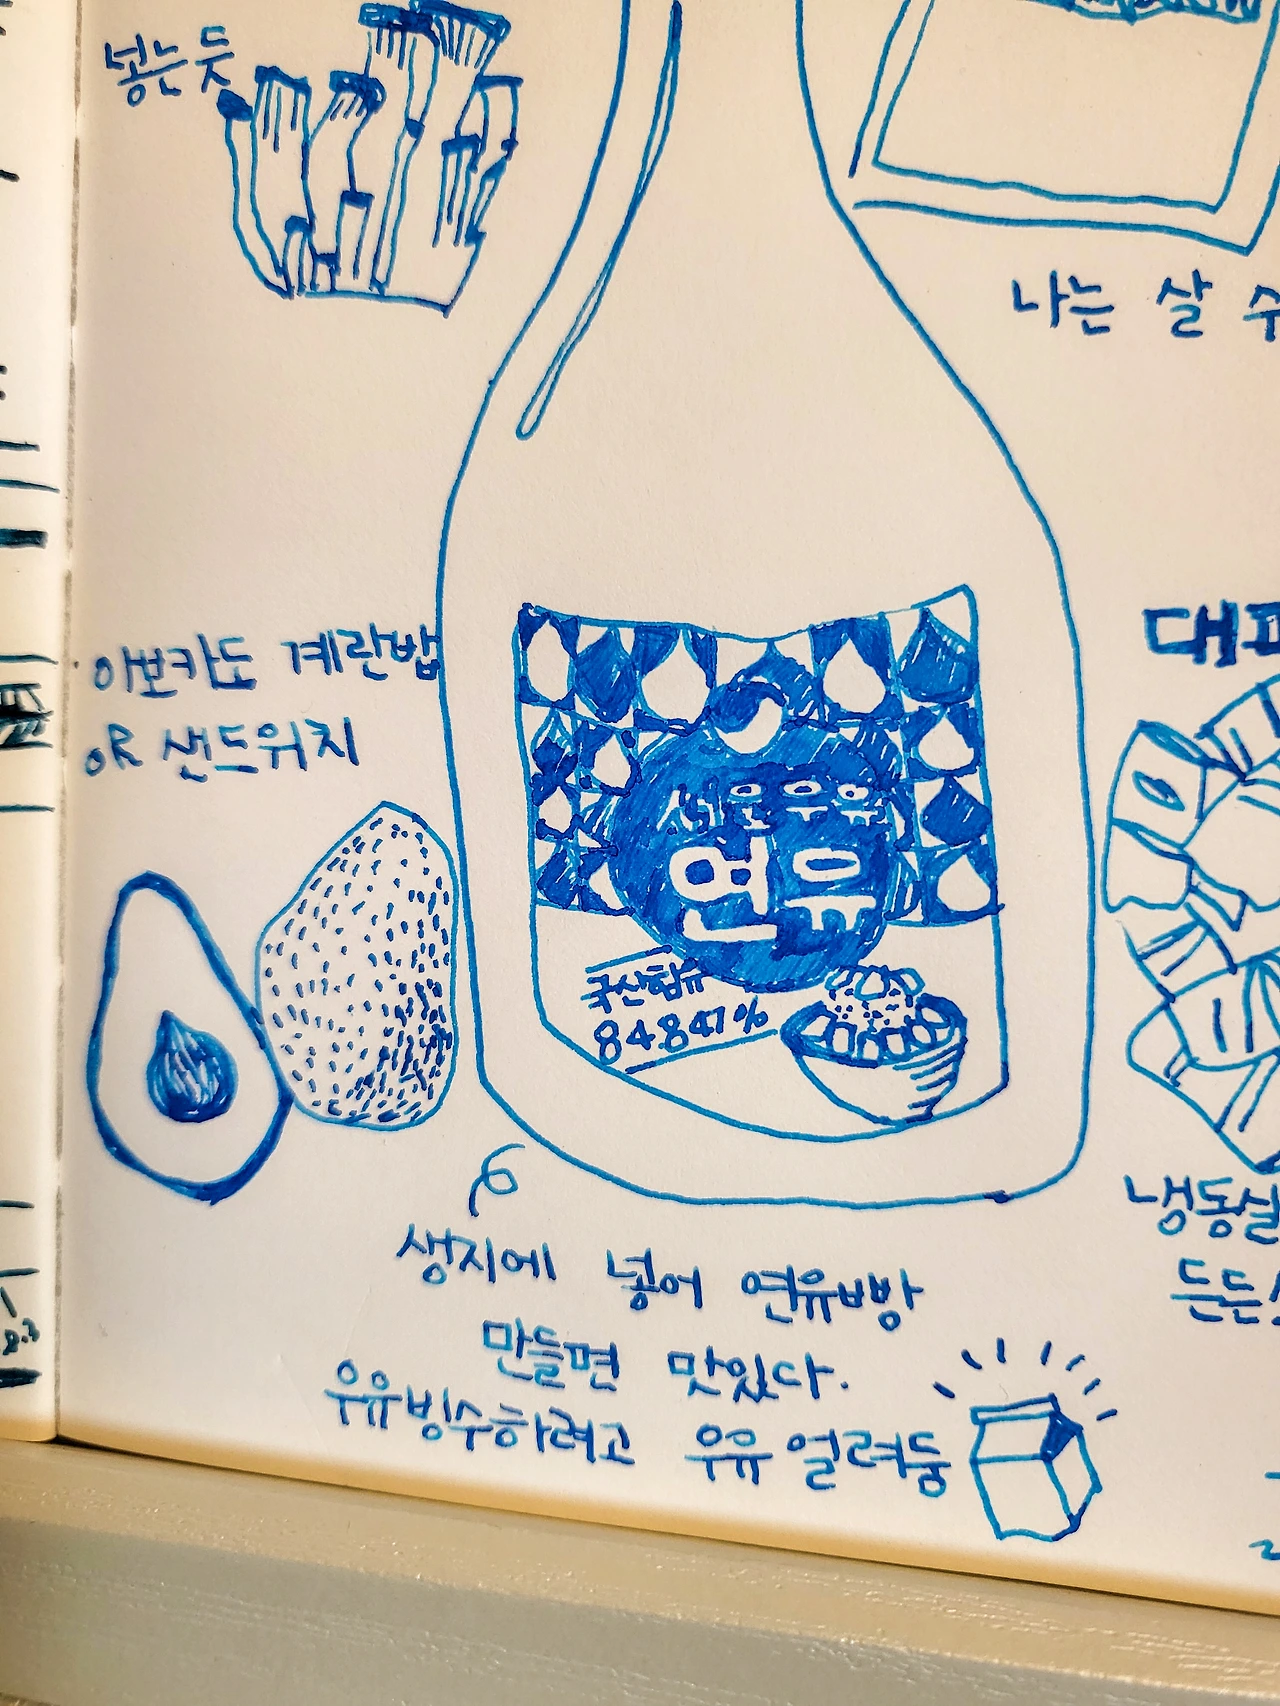 넣는듯
나는 살 수
아보카도 계란밥
OR 샌드위치
서울우유
연유
국산원유
84.847%
대파
냉동실
든든
생지에 넣어 연유빵
만들면 맛있다.
우유빙수하려고 우유 얼려둠